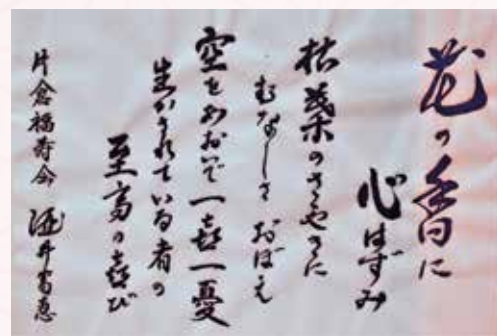 花の香に
心はずみ
枯葉のさゝやきに
むなしさ おぼえ
空をあおいで一喜一憂
生かされている者の
至高の喜び
片倉福寿会 酒井富恵